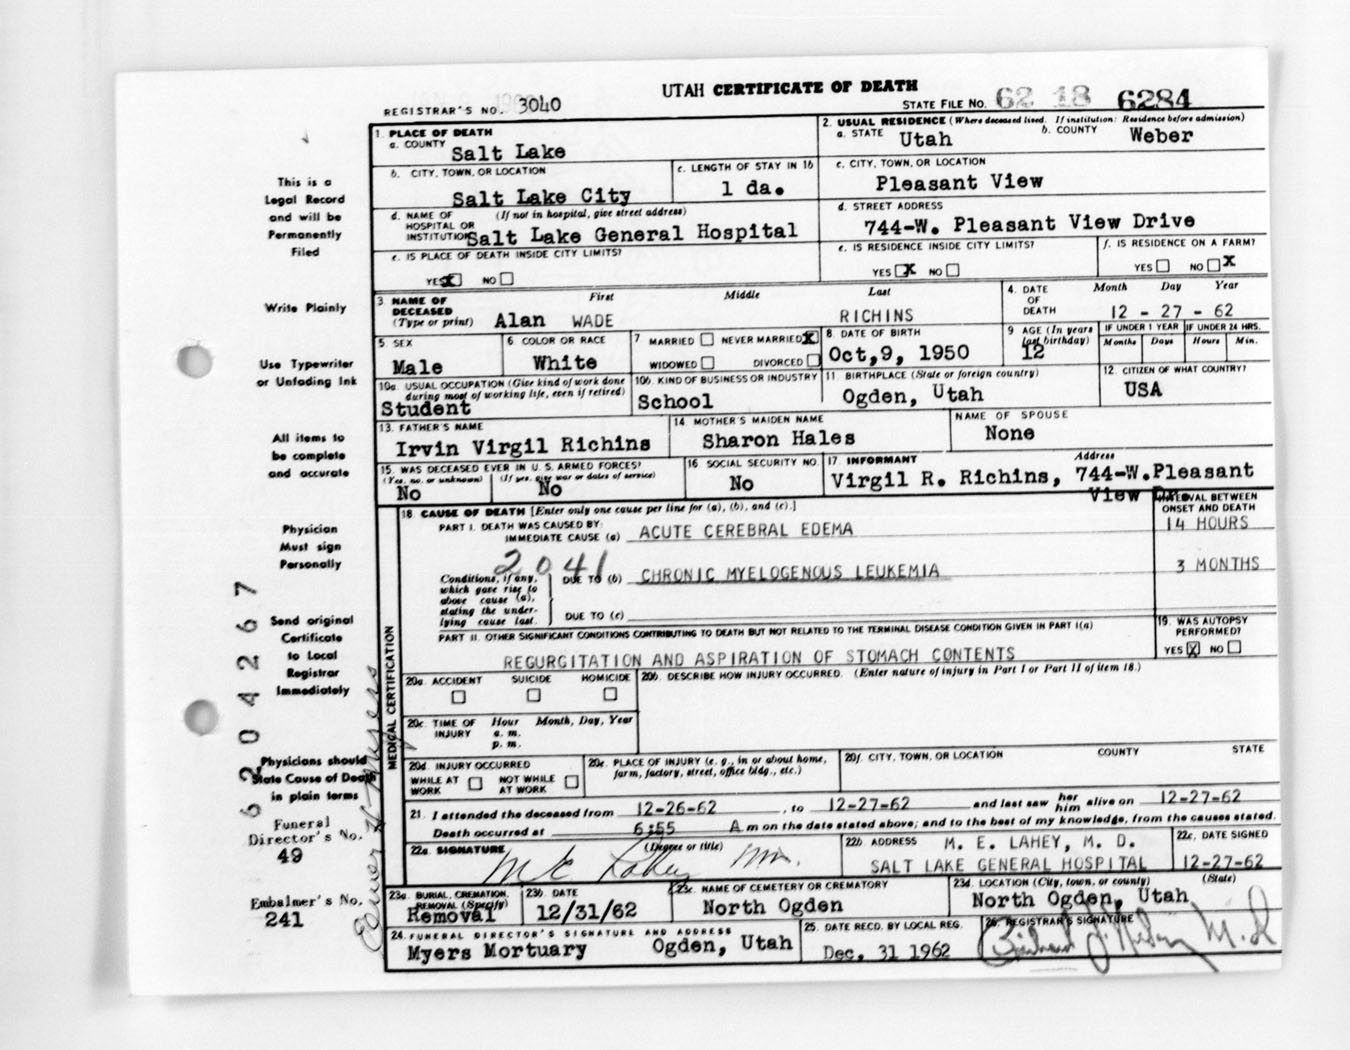 UTAH CERTIFICATE OF DEATH
REGISTRAR'S NO. 3040
STATE FILE NO. 62 18 6284
1. PLACE OF DEATH
a. COUNTY
Salt Lake
2. USUAL RESIDENCE (Where deceased lived. If institution: Residence before admission)
a. STATE Utah b. COUNTY Weber
b. CITY, TOWN, OR LOCATION
Salt Lake City
c. LENGTH OF STAY IN 1b
1 da.
c. CITY, TOWN, OR LOCATION
Pleasant View
d. NAME OF HOSPITAL OR INSTITUTION (If not in hospital, give street address)
Salt Lake General Hospital
d. STREET ADDRESS
744-W. Pleasant View Drive
e. IS PLACE OF DEATH INSIDE CITY LIMITS?
YES X NO
e. IS RESIDENCE INSIDE CITY LIMITS?
YES X NO
f. IS RESIDENCE ON A FARM?
YES NO X
3. NAME OF DECEASED (Type or print)
First Middle Last
Alan WADE RICHINS
4. DATE OF DEATH Month Day Year
12 - 27 - 62
5. SEX
Male
6. COLOR OR RACE
White
7. MARRIED NEVER MARRIED X
WIDOWED DIVORCED
8. DATE OF BIRTH
Oct,9, 1950
9. AGE (In years last birthday)
12
IF UNDER 1 YEAR IF UNDER 24 HRS.
Months Days Hours Min.
10a. USUAL OCCUPATION (Give kind of work done during most of working life, even if retired)
Student
10b. KIND OF BUSINESS OR INDUSTRY
School
11. BIRTHPLACE (State or foreign country)
Ogden, Utah
12. CITIZEN OF WHAT COUNTRY?
USA
13. FATHER'S NAME
Irvin Virgil Richins
14. MOTHER'S MAIDEN NAME
Sharon Hales
NAME OF SPOUSE
None
15. WAS DECEASED EVER IN U.S. ARMED FORCES?
(Yes, no, or unknown) (If yes, give war or dates of service)
No No
16. SOCIAL SECURITY NO.
No
17. INFORMANT Address
Virgil R. Richins, 744-W.Pleasant
View Dr.
18. CAUSE OF DEATH [Enter only one cause per line for (a), (b), and (c).]
INTERVAL BETWEEN ONSET AND DEATH
PART I. DEATH WAS CAUSED BY:
IMMEDIATE CAUSE (a) ACUTE CEREBRAL EDEMA 14 HOURS
2041
Conditions, if any, which gave rise to above cause (a), stating the underlying cause last.
DUE TO (b) CHRONIC MYELOGENOUS LEUKEMIA 3 MONTHS
DUE TO (c)
PART II. OTHER SIGNIFICANT CONDITIONS CONTRIBUTING TO DEATH BUT NOT RELATED TO THE TERMINAL DISEASE CONDITION GIVEN IN PART I(a)
REGURGITATION AND ASPIRATION OF STOMACH CONTENTS
19. WAS AUTOPSY PERFORMED?
YES X NO
MEDICAL CERTIFICATION
20a. ACCIDENT SUICIDE HOMICIDE
20b. DESCRIBE HOW INJURY OCCURRED. (Enter nature of injury in Part I or Part II of item 18.)
20c. TIME OF INJURY Hour Month, Day, Year
a. m.
p. m.
20d. INJURY OCCURRED
WHILE AT WORK NOT WHILE AT WORK
20e. PLACE OF INJURY (e. g., in or about home, farm, factory, street, office bldg., etc.)
20f. CITY, TOWN, OR LOCATION COUNTY STATE
21. I attended the deceased from 12-26-62, to 12-27-62 and last saw her him alive on 12-27-62
Death occurred at 6:55 A m on the date stated above; and to the best of my knowledge, from the causes stated.
22a. SIGNATURE (Degree or title)
M E Lahey MD.
22b. ADDRESS M. E. LAHEY, M. D.
SALT LAKE GENERAL HOSPITAL
22c. DATE SIGNED
12-27-62
23a. BURIAL, CREMATION, REMOVAL (Specify)
Removal
23b. DATE
12/31/62
23c. NAME OF CEMETERY OR CREMATORY
North Ogden
23d. LOCATION (City, town, or county) (State)
North Ogden, Utah
24. FUNERAL DIRECTOR'S SIGNATURE AND ADDRESS
Myers Mortuary Ogden, Utah
25. DATE RECD. BY LOCAL REG.
Dec. 31 1962
26. REGISTRAR'S SIGNATURE
This is a
Legal Record
and will be
Permanently
Filed
Write Plainly
Use Typewriter
or Unfading Ink
All items to
be complete
and accurate
Physician
Must sign
Personally
Send original
Certificate
to Local
Registrar
Immediately
Physicians should
State Cause of Death
in plain terms
Funeral
Director's No.
49
Embalmer's No.
241
6204267